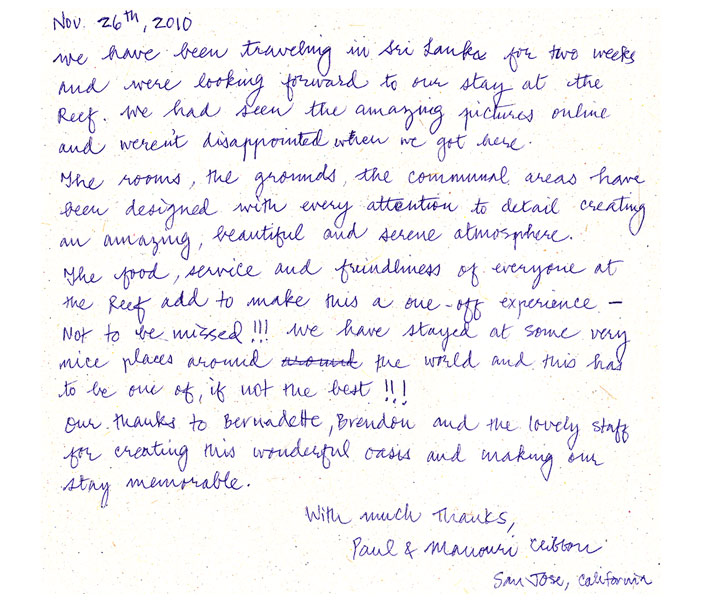 Nov. 26th, 2010
we have been traveling in Sri Lanka for two weeks
and were looking forward to our stay at the
Reef. We had seen the amazing pictures online
and weren't disappointed when we got here.
The rooms, the grounds, the communal areas have
been designed with every attention to detail creating
an amazing, beautiful and serene atmosphere.
The food, service and freindliness of everyone at
the Reef add to make this a one-off experience –
Not to be missed!!! We have stayed at some very
nice places around around the world and this has
to be one of, if not the best!!!
Our thanks to Bernadette, Brendon and the lovely staff
for creating this wonderful oasis and making our
stay memorable.
With much Thanks,
Paul & Manouri
San Jose, California